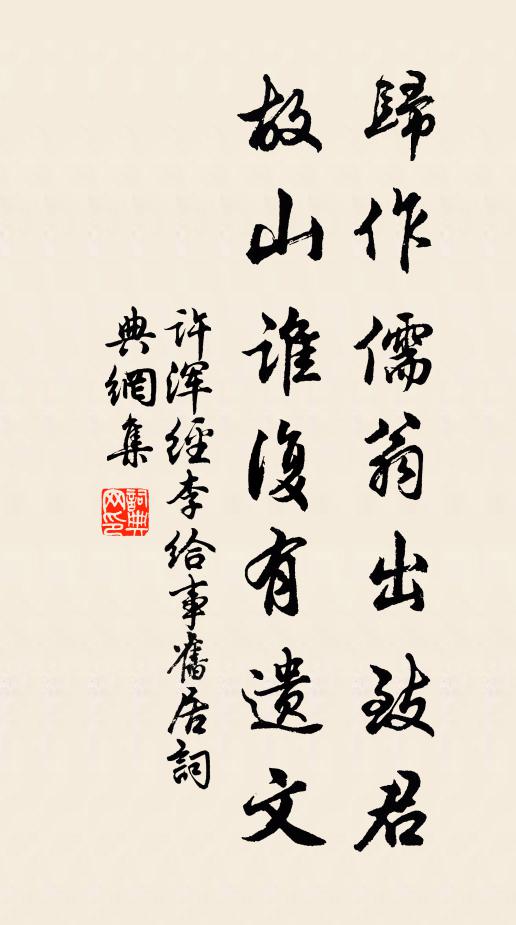 歸作儒翁出致君
故山誰復有遺文
許渾經李給事舊居詞
典網集
詞典網印